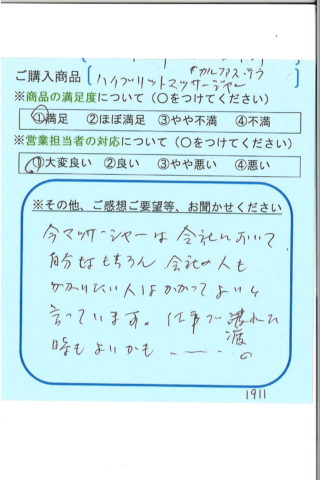 ご購入商品 ハイブリットマッサージャー
※商品の満足度について（○をつけてください）
①満足 ②ほぼ満足 ③やや不満 ④不満
※営業担当者の対応について（○をつけてください）
①大変良い ②良い ③やや悪い ④悪い
※その他、ご感想ご要望等、お聞かせください
今マッサージャーは会社において
自分はもちろん会社の人も
かかりたい人はかかってよいと
言っています。仕事で疲れた
時もよいかも
1911